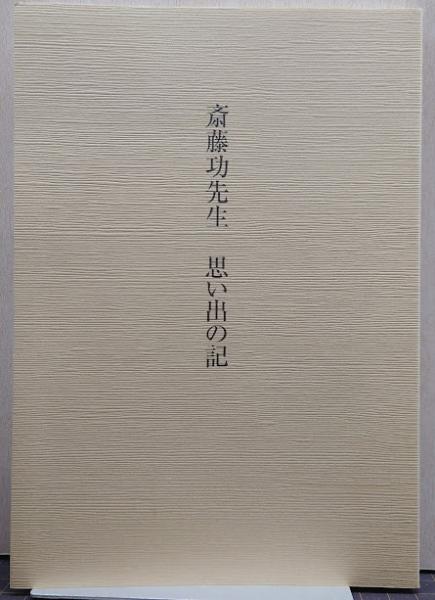 斎藤功先生　思い出の記